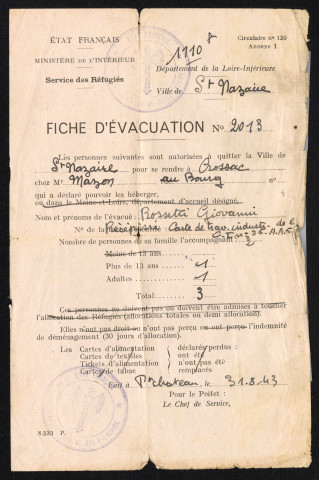 ÉTAT FRANÇAIS
MINISTÈRE DE L'INTÉRIEUR
Service des Réfugiés
1110 8
Circulaire nº 120
Annexe I
Département de la Loire-Inférieure
Ville de St Nazaire
FICHE D'ÉVACUATION No 2013
Les personnes suivantes sont autorisées à quitter la Ville de
St Nazaire pour se rendre à Crossac
chez Mr Mazon au Bourg nº
qui a déclaré pouvoir les héberger,
ou dans le Maine-et-Loire, département d'accueil désigné.
Nom et prénoms de l'évacué : Rossetti Giovanni
Nº de la Récépissé Carte de trav. industr. de
Nombre de personnes de sa famille l'accompagnant : 2
Moins de 13 ans
Plus de 13 ans 1
Adultes 1
Total 3
Ces personnes ne doivent pas ou doivent être admises à toucher
l'allocation des Réfugiés (allocations totales ou demi allocation).
Elles n'ont pas droit ou n'ont pas perçu ou ont perçu l'indemnité
de déménagement (30 jours d'allocation).
Les Cartes d'alimentation déclarés perdus :
Cartes de textiles ont été
Tickets d'alimentation n'ont pas été
Cartes de tabac remplacés
Fait à Ptchateau, le 31.8.43
Pour le Préfet :
Le Chef de Service,
8.533 P.